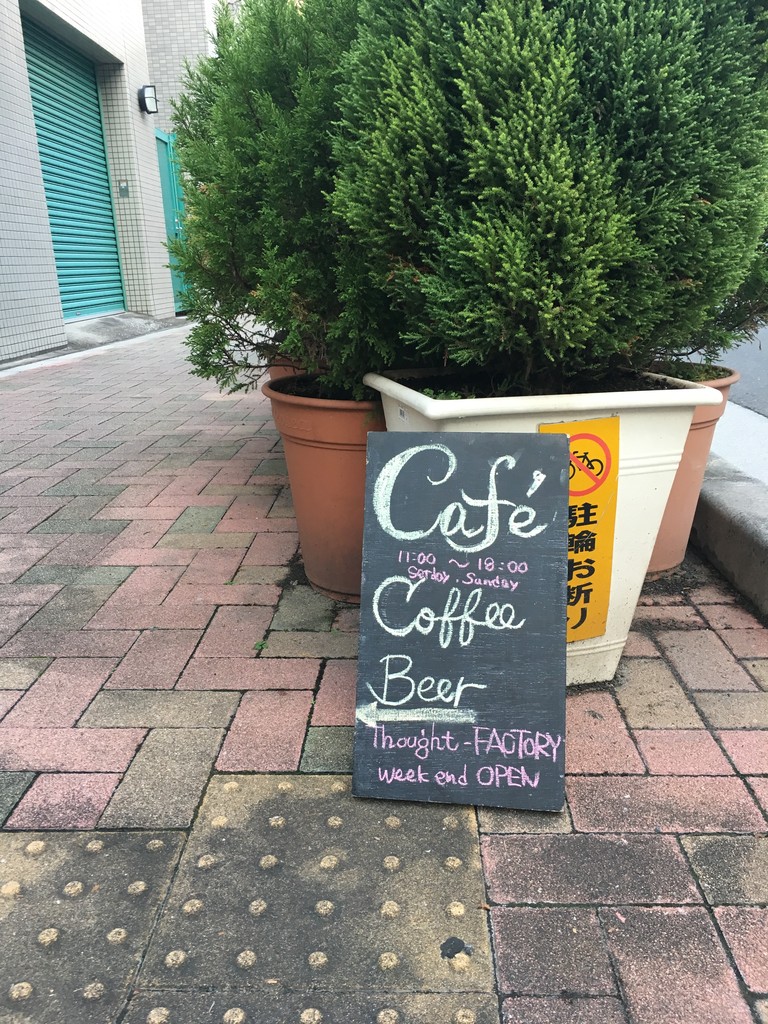 Café
11:00 ~ 18:00
Serday . Sunday
Coffee
Beer
Thought - FACTORY
week end OPEN
駐輪お断り